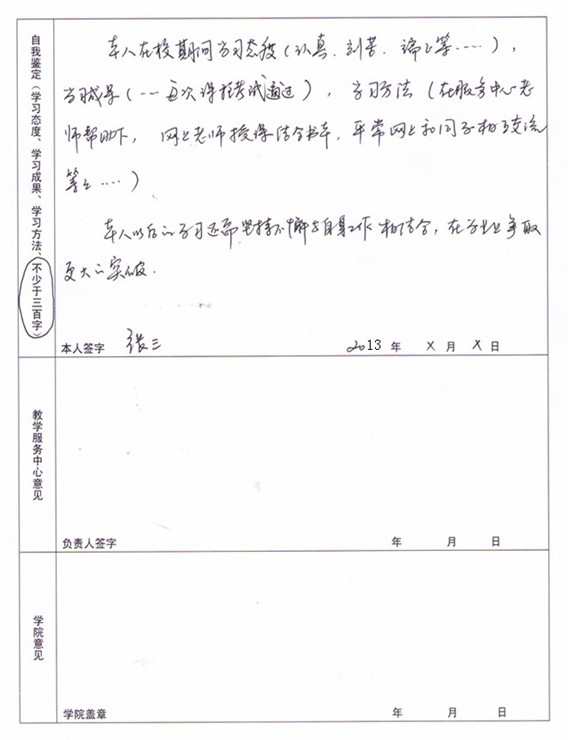 自我鉴定（学习态度、学习成果、学习方法、不少于三百字）
本人在校期间学习态度（认真、刻苦、端正等……），
学习成果（一次课程考试通过），学习方法（在服务中心老
师帮助下，网上老师授课结合书本，平常网上和同学相互交流
等等……）
本人以后的学习还需坚持不懈与自身工作相结合，在学业争取
更大的突破.
本人签字 张三 2013 年 X 月 X 日
教学服务中心意见
负责人签字 年 月 日
学院意见
学院盖章 年 月 日